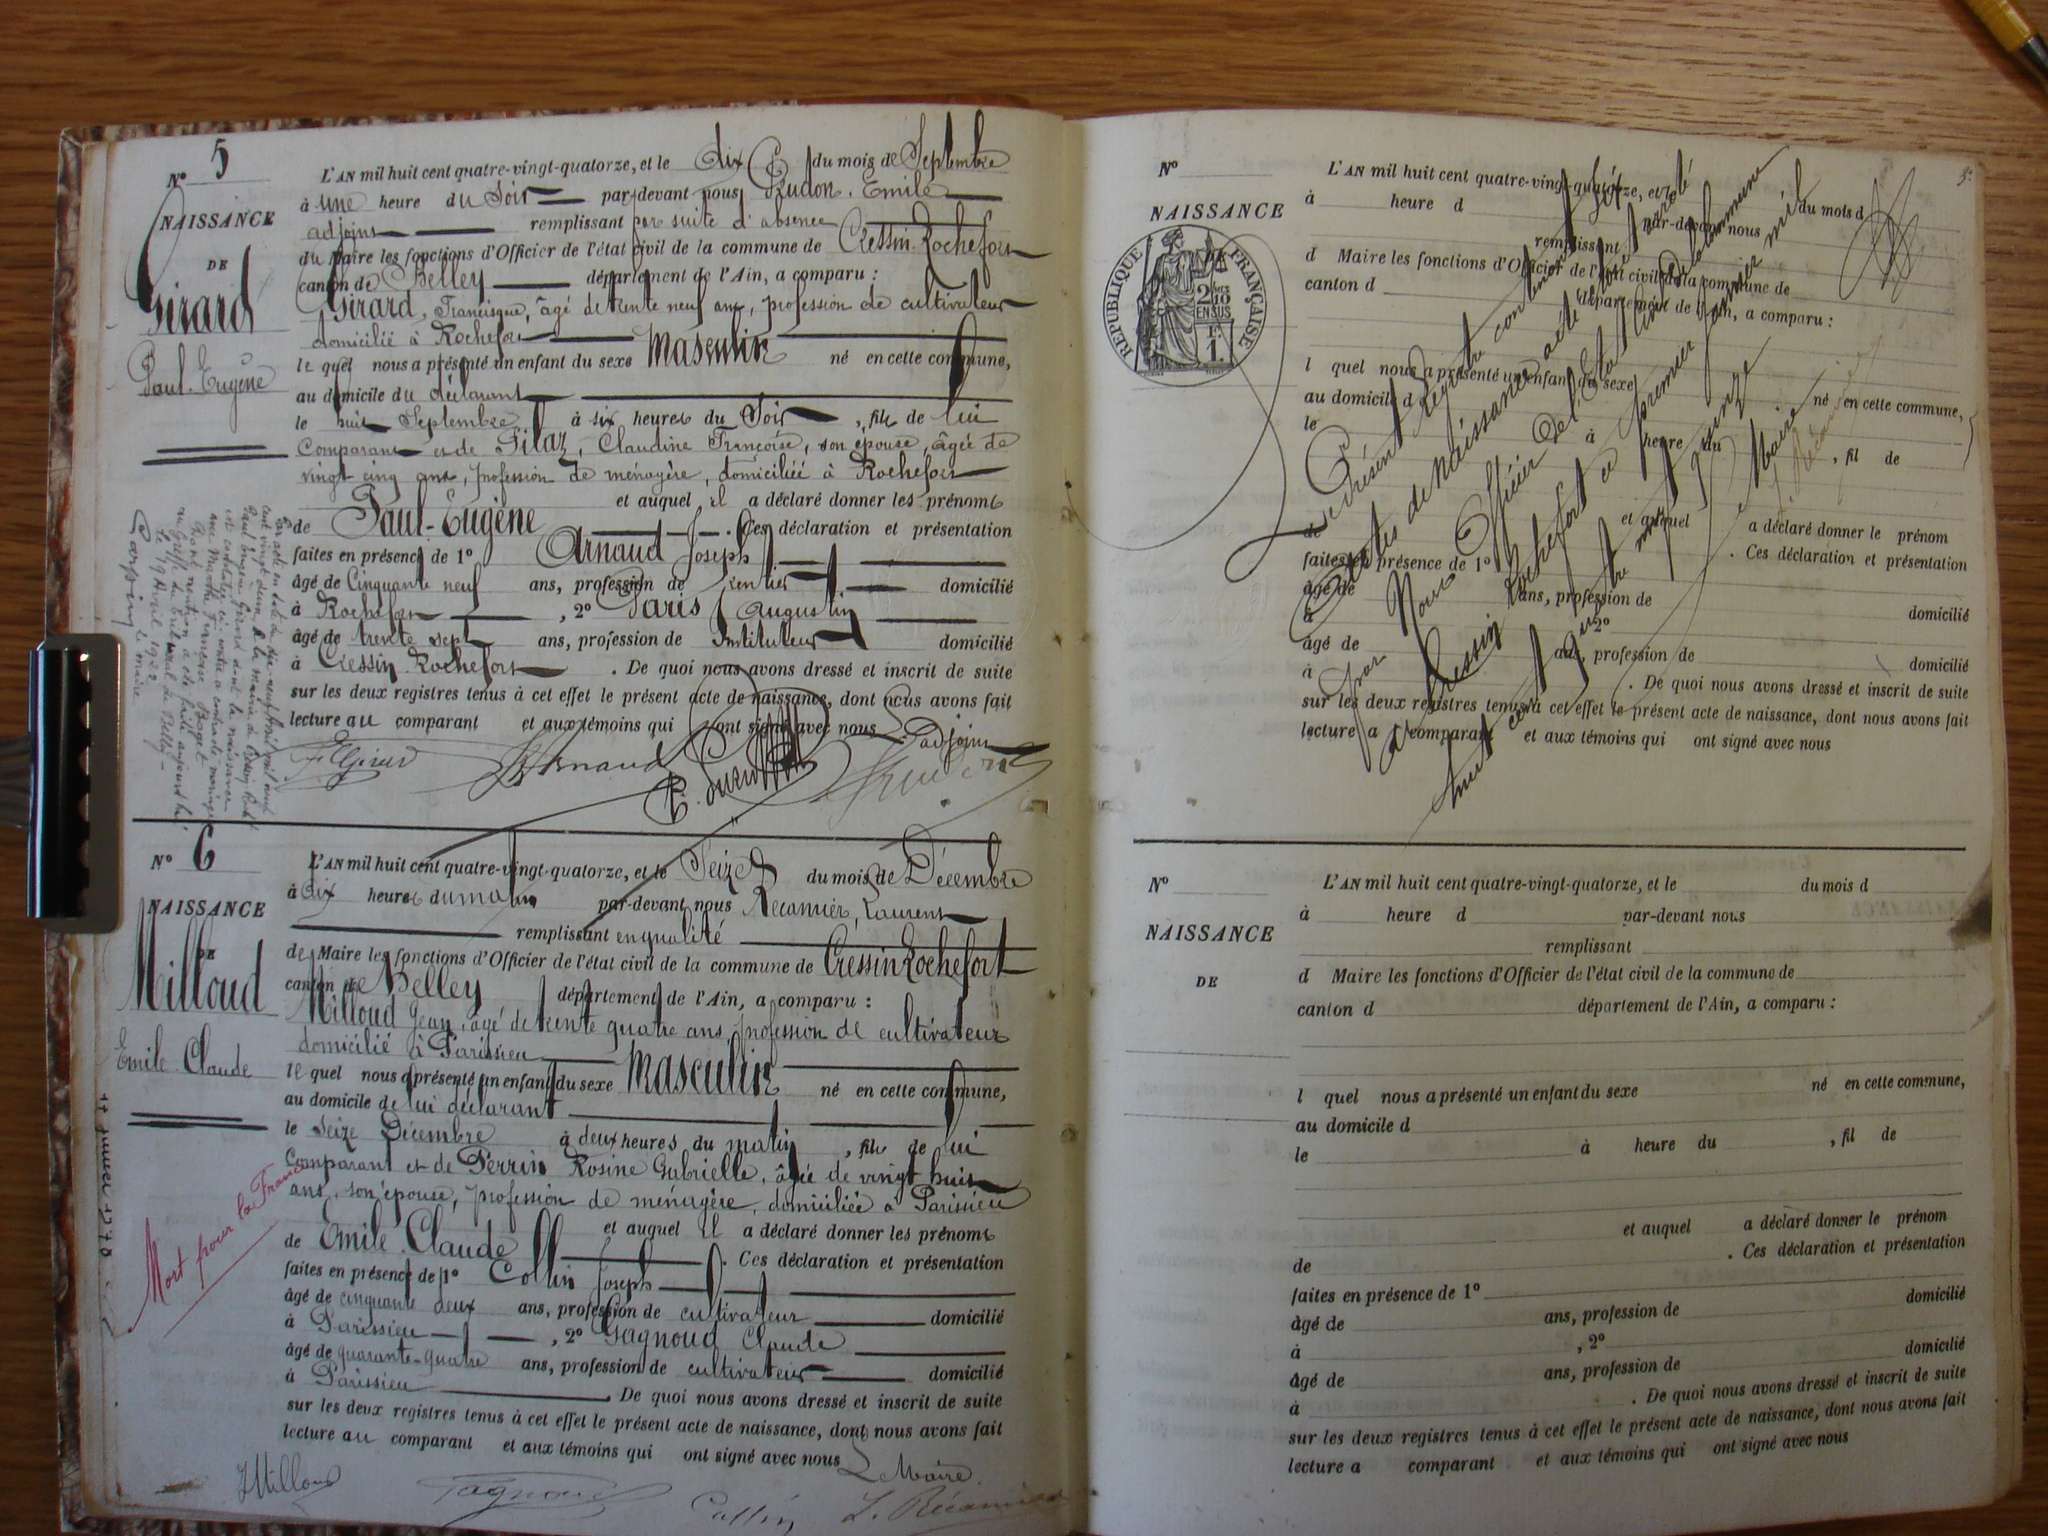 N° 5
NAISSANCE
DE
Girard
Paul-Eugène
L'AN mil huit cent quatre-vingt-quatorze, et le dix du mois de Septembre
à une heure du Soir par-devant nous Prudon, Emile
adjoint remplissant par suite d'absence
du Maire les fonctions d'Officier de l'état civil de la commune de Cressin-Rochefort
canton de Belley département de l'Ain, a comparu :
Girard, Francisque, âgé de trente neuf ans, profession de cultivateur
domicilié à Rochefort
le quel nous a présenté un enfant du sexe Masculin né en cette commune,
au domicile du déclarant
le huit Septembre à six heures du Soir, fils de lui
Comparant et de Pilaz, Claudine Françoise, son épouse, âgée de
vingt cinq ans, profession de ménagère, domiciliée à Rochefort
et auquel il a déclaré donner les prénoms
de Paul-Eugène. Ces déclaration et présentation
faites en présence de 1° Arnaud Joseph
âgé de Cinquante neuf ans, profession de rentier domicilié
à Rochefort, 2° Paris Augustin
âgé de trente sept ans, profession de Instituteur domicilié
à Cressin-Rochefort. De quoi nous avons dressé et inscrit de suite
sur les deux registres tenus à cet effet le présent acte de naissance, dont nous avons fait
lecture au comparant et aux témoins qui ont signé avec nous L'adjoint
Arnaud
le 19 Avril 1922
le maire
N° 6
NAISSANCE
DE
Milloud
Emile Claude
L'AN mil huit cent quatre-vingt-quatorze, et le Seize du mois de Décembre
à dix heures du matin par-devant nous Récamier, Laurent
remplissant en qualité
de Maire les fonctions d'Officier de l'état civil de la commune de Cressin Rochefort
canton de Belley département de l'Ain, a comparu :
Milloud Jean, âgé de trente quatre ans, profession de cultivateur
domicilié à Parissieu
le quel nous a présenté un enfant du sexe Masculin né en cette commune,
au domicile de lui déclarant
le Seize Décembre à deux heures du matin, fils de lui
Comparant et de Perrin Rosine Gabrielle, âgée de vingt huit
ans, son épouse, profession de ménagère, domiciliée à Parissieu
et auquel il a déclaré donner les prénoms
de Emile Claude. Ces déclaration et présentation
faites en présence de 1° Collin Joseph
âgé de cinquante deux ans, profession de cultivateur domicilié
à Parissieu, 2° Gagnoud Claude
âgé de quarante-quatre ans, profession de cultivateur domicilié
à Parissieu. De quoi nous avons dressé et inscrit de suite
sur les deux registres tenus à cet effet le présent acte de naissance, dont nous avons fait
lecture au comparant et aux témoins qui ont signé avec nous Le Maire.
Mort pour la France
J Milloud Gagnoud Collin L. Récamier
N°
NAISSANCE
RÉPUBLIQUE FRANÇAISE
2/10 EN SUS
F.
1.
L'AN mil huit cent quatre-vingt-quatorze, et le du mois d
à heure d par-devant nous
remplissant
d Maire les fonctions d'Officier de l'état civil de la commune de
canton d département de l'Ain, a comparu :
l quel nous a présenté un enfant du sexe né en cette commune,
au domicile d
le à heure du, fil de
et auquel a déclaré donner le prénom
de. Ces déclaration et présentation
faites en présence de 1°
âgé de ans, profession de domicilié
à, 2°
âgé de ans, profession de domicilié
à. De quoi nous avons dressé et inscrit de suite
sur les deux registres tenus à cet effet le présent acte de naissance, dont nous avons fait
lecture a comparant et aux témoins qui ont signé avec nous
Le présent Régistre contenant Six
actes de naissance a été clos et arrêté
Par Nous Officier de l'état civil de la commune
à Cressin Rochefort ce premier janvier mil
huit cent quatre vingt quinze
Le Maire
N°
NAISSANCE
DE
L'AN mil huit cent quatre-vingt-quatorze, et le du mois d
à heure d par-devant nous
remplissant
d Maire les fonctions d'Officier de l'état civil de la commune de
canton d département de l'Ain, a comparu :
l quel nous a présenté un enfant du sexe né en cette commune,
au domicile d
le à heure du, fil de
et auquel a déclaré donner le prénom
de. Ces déclaration et présentation
faites en présence de 1°
âgé de ans, profession de domicilié
à, 2°
âgé de ans, profession de domicilié
à. De quoi nous avons dressé et inscrit de suite
sur les deux registres tenus à cet effet le présent acte de naissance, dont nous avons fait
lecture a comparant et aux témoins qui ont signé avec nous